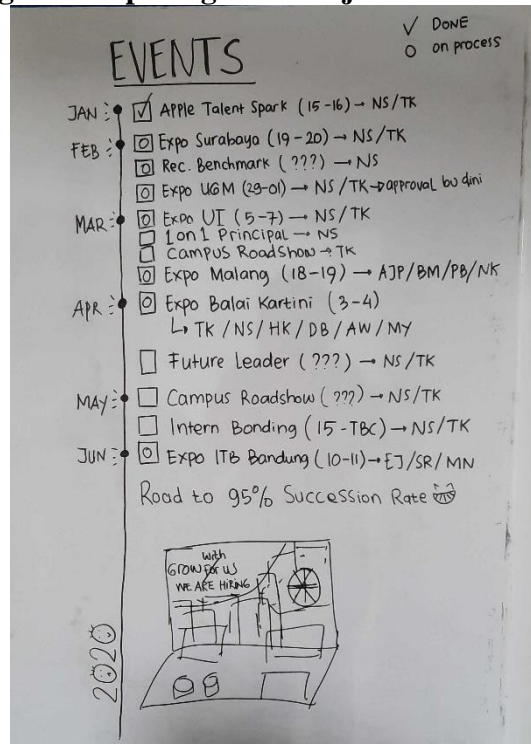 ✓ DONE
O on process
EVENTS
JAN: ☑ Apple Talent Spark (15-16) → NS/TK
FEB: Expo Surabaya (19-20) → NS/TK
Rec. Benchmark (???) → NS
Expo UGM (29-01) → NS/TK → approval bu dini
MAR: Expo UI (5-7) → NS/TK
1 on 1 Principal → NS
Campus Roadshow → TK
Expo Malang (18-19) → AJP/BM/PB/NK
APR: Expo Balai Kartini (3-4)
↳ TK/NS/HK/DB/AW/MY
Future Leader (???) → NS/TK
MAY: Campus Roadshow (???) → NS/TK
Intern Bonding (15-TBC) → NS/TK
JUN: Expo ITB Bandung (10-11) → EJ/SR/MN
Road to 95% Succession Rate
with
GROW FOR US
WE ARE HIRING
2020